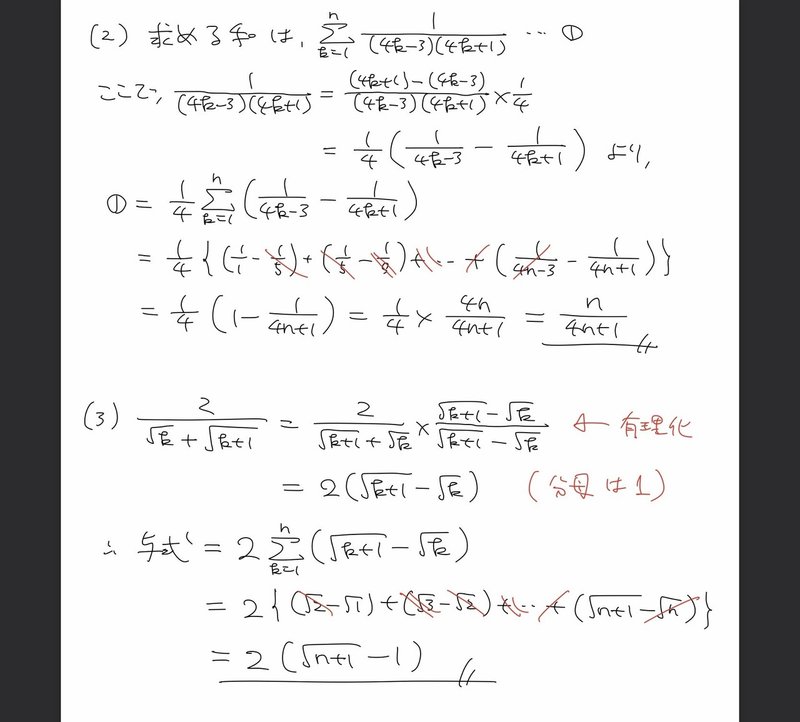 (2) 求める和は、 \sum_{k=1}^{n} \frac{1}{(4k-3)(4k+1)} … ①
ここで、 \frac{1}{(4k-3)(4k+1)} = \frac{(4k+1)-(4k-3)}{(4k-3)(4k+1)} × \frac{1}{4}
= \frac{1}{4} ( \frac{1}{4k-3} - \frac{1}{4k+1} ) より,
① = \frac{1}{4} \sum_{k=1}^{n} ( \frac{1}{4k-3} - \frac{1}{4k+1} )
= \frac{1}{4} { ( \frac{1}{1} - \frac{1}{5} ) + ( \frac{1}{5} - \frac{1}{9} ) + … + ( \frac{1}{4n-3} - \frac{1}{4n+1} ) }
= \frac{1}{4} ( 1 - \frac{1}{4n+1} ) = \frac{1}{4} × \frac{4n}{4n+1} = \frac{n}{4n+1}
(3) \frac{2}{√k + √(k+1)} = \frac{2}{√(k+1) + √k} × \frac{√(k+1) - √k}{√(k+1) - √k} ← 有理化
= 2 ( √(k+1) - √k ) (分母は1)
∴ 与式 = 2 \sum_{k=1}^{n} ( √(k+1) - √k )
= 2 { (√2 - √1) + (√3 - √2) + … + (√(n+1) - √n) }
= 2 ( √(n+1) - 1 )